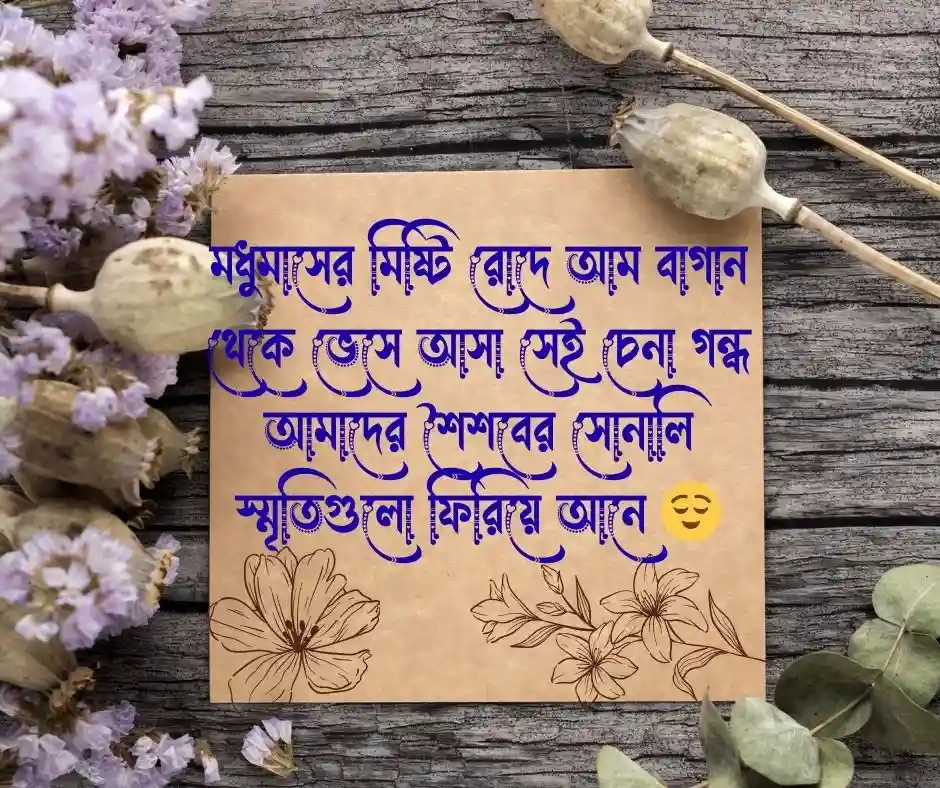 মধুমাসের মিষ্টি রোদে আম বাগান
থেকে ভেসে আসা সেই চেনা গন্ধ
আমাদের শৈশবের সোনালি
স্মৃতিগুলো ফিরিয়ে আনে 😌